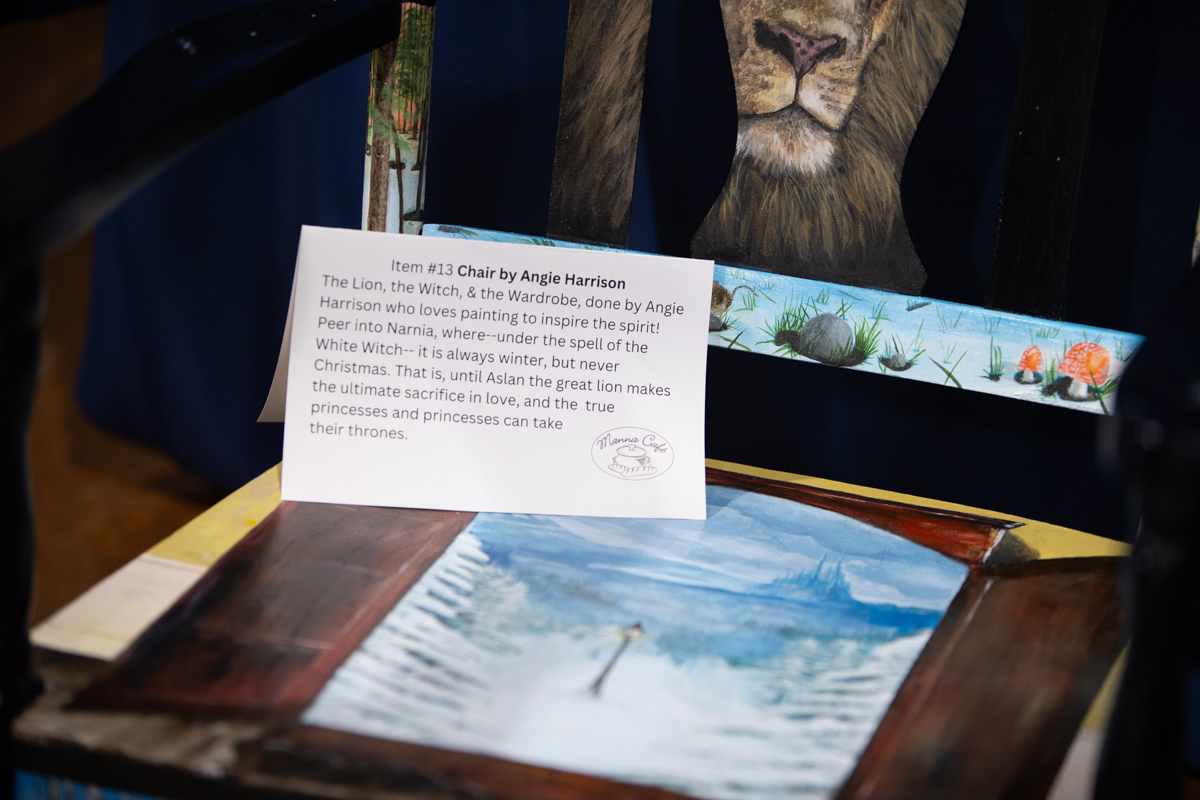 Item #13 Chair by Angie Harrison
The Lion, the Witch, & the Wardrobe, done by Angie
Harrison who loves painting to inspire the spirit!
Peer into Narnia, where--under the spell of the
White Witch-- it is always winter, but never
Christmas. That is, until Aslan the great lion makes
the ultimate sacrifice in love, and the  true
princesses and princesses can take
their thrones.
Manna Café